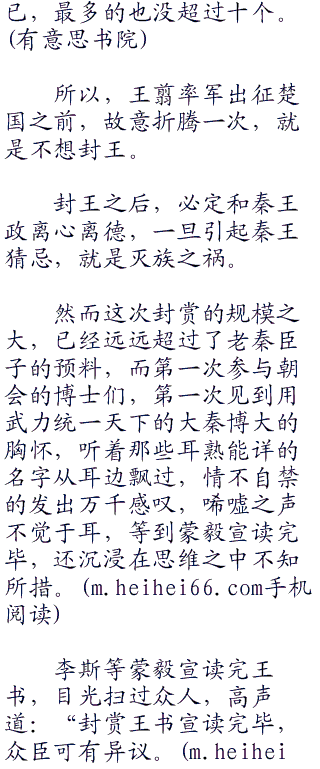 已，最多的也没超过十个。
(有意思书院)
所以，王翦率军出征楚
国之前，故意折腾一次，就
是不想封王。
封王之后，必定和秦王
政离心离德，一旦引起秦王
猜忌，就是灭族之祸。
然而这次封赏的规模之
大，已经远远超过了老秦臣
子的预料，而第一次参与朝
会的博士们，第一次见到用
武力统一天下的大秦博大的
胸怀，听着那些耳熟能详的
名字从耳边飘过，情不自禁
的发出万千感叹，唏嘘之声
不觉于耳，等到蒙毅宣读完
毕，还沉浸在思维之中不知
所措。(m.heihei66.com手机
阅读)
李斯等蒙毅宣读完王
书，目光扫过众人，高声
道：“封赏王书宣读完毕，
众臣可有异议。(m.heihei